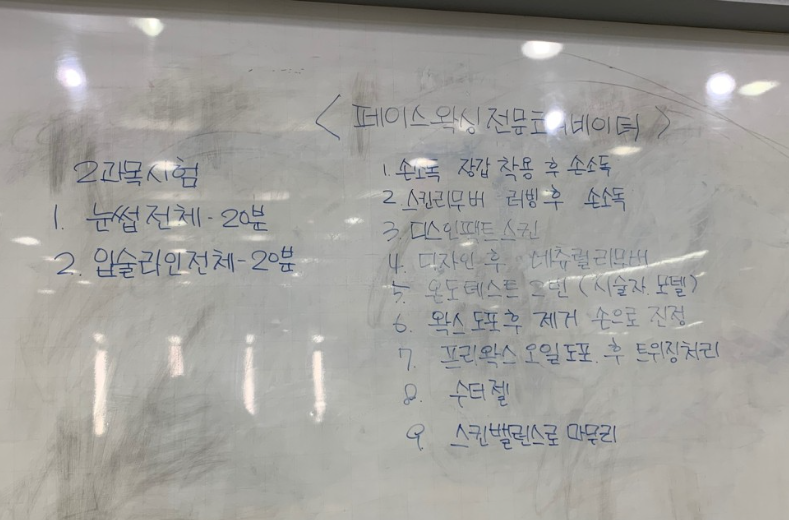 2과목시험
1. 눈썹전체 - 20분
2. 입술라인전체 - 20분
<페이스왁싱전문 >
1. 손소독 장갑 착용 후 손소독
2 스킨리무버 러빙 후 손소독
3 디스인팩트스킨
4. 디자인 후 네츄럴리무버
5. 온도테스트 2번 (시술자, 모델)
6. 왁스도포후 제거 손으로 진정
7. 프리왁스오일도포. 후 트위징처리
8. 수더젤
9. 스킨밸런스로 마무리